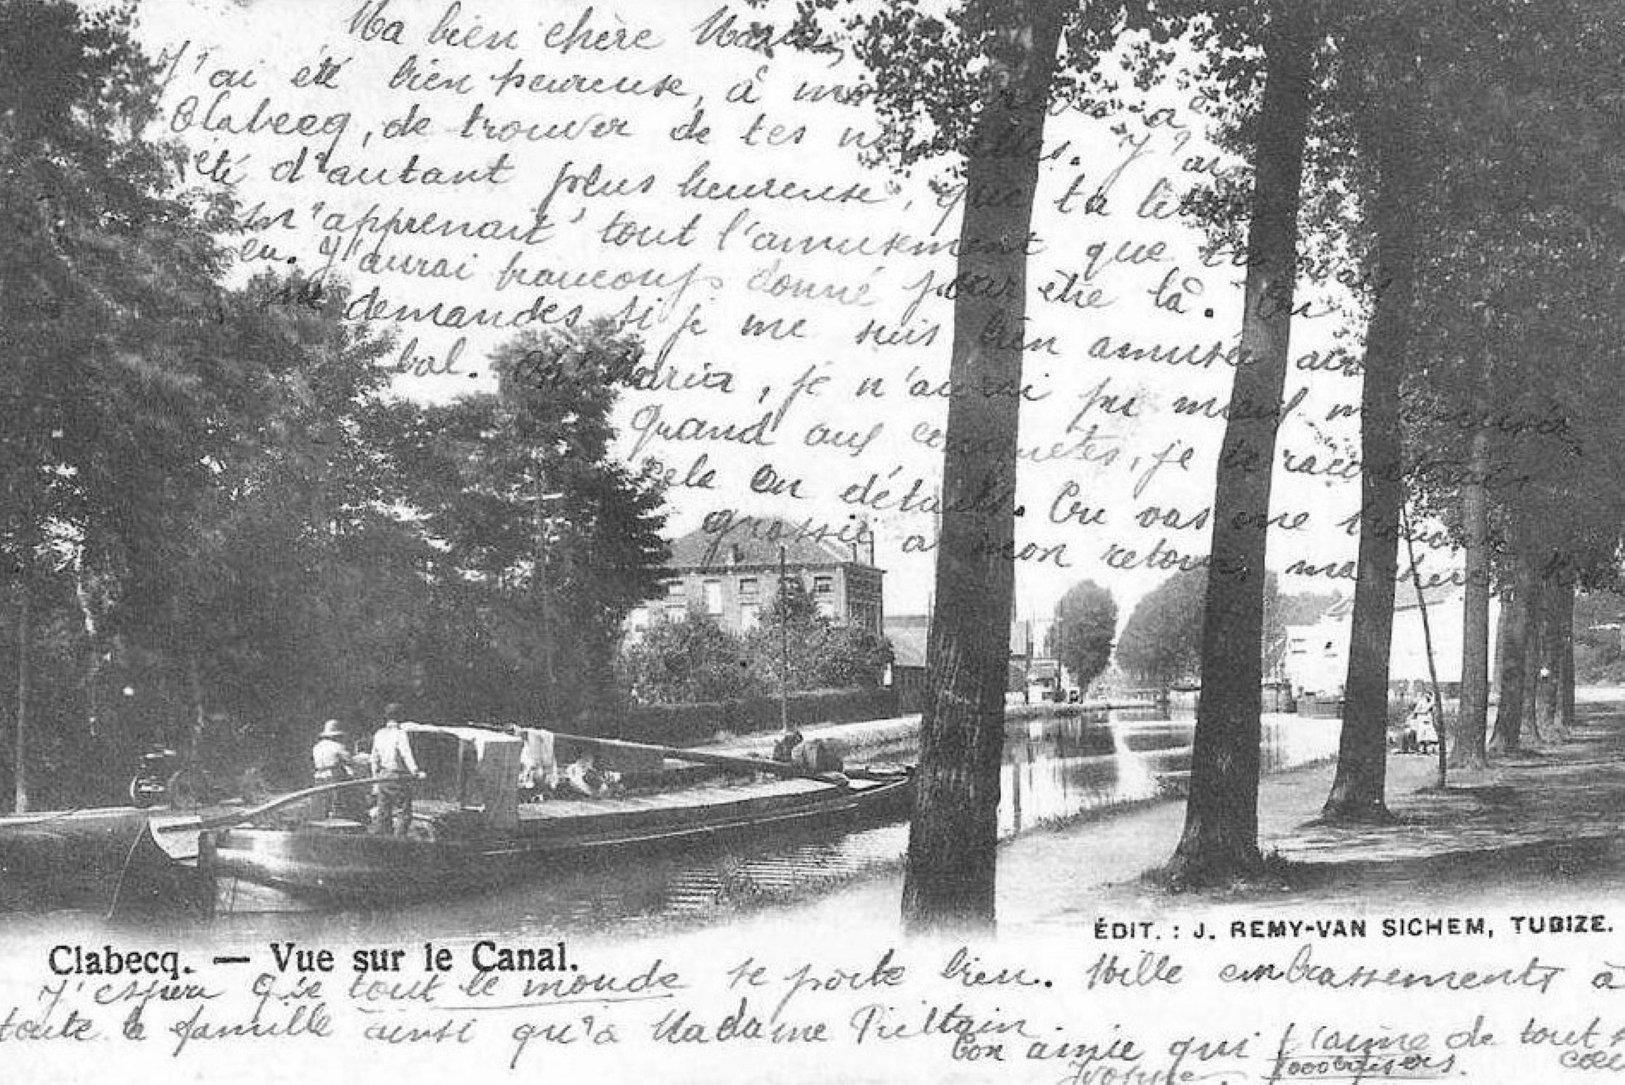 Ma bien chère Maria,
J'ai été bien heureuse, à mon à
Clabecq, de trouver de tes nouvelles. J'ai
été d'autant plus heureuse, que ta lettre
m'apprenait tout l'amusement que tu avais
eu. J'aurai beaucoup donné pour être là. Tu
me demandes si je me suis bien amusée au
bal. Oh! Maria, je n'aurai pu mais m'amuser
Quand aux conquêtes, je te raconterai
cela en détails. Tu vas me trouver
grossie à mon retour, ma chère
Clabecq. — Vue sur le Canal.
ÉDIT. : J. REMY-VAN SICHEM, TUBIZE.
J'espère que tout le monde se porte bien. Mille embrassements à
toute la famille ainsi qu'à Madame Piéltain
Ton amie qui t'aime de tout
Yvonne. 1000 baisers.